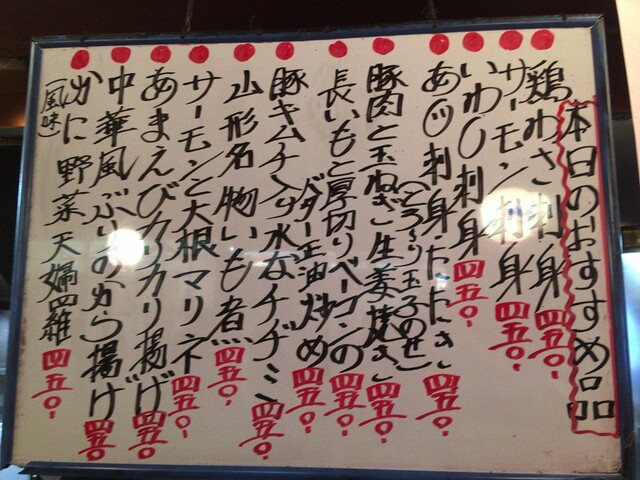 本日のおすすめ品
鶏わさ刺身 四五〇.
サーモン刺身 四五〇.
いわし刺身 四五〇.
あじ刺身・たたき 四五〇.
豚肉と玉ねぎ生姜焼き
(とろ〜り玉子のせ) 四五〇.
長いもと厚切りベーコンの 四五〇.
バター正油炒め 四五〇.
豚キムチ入り水女チヂミ 四五〇.
山形名物いも煮 四五〇.
サーモンと大根マリネ 四五〇.
あまえびカリカリ揚げ 四五〇.
中華風ぶりのから揚げ 四五〇.
かに野菜天婦羅 四五〇.
(風味)